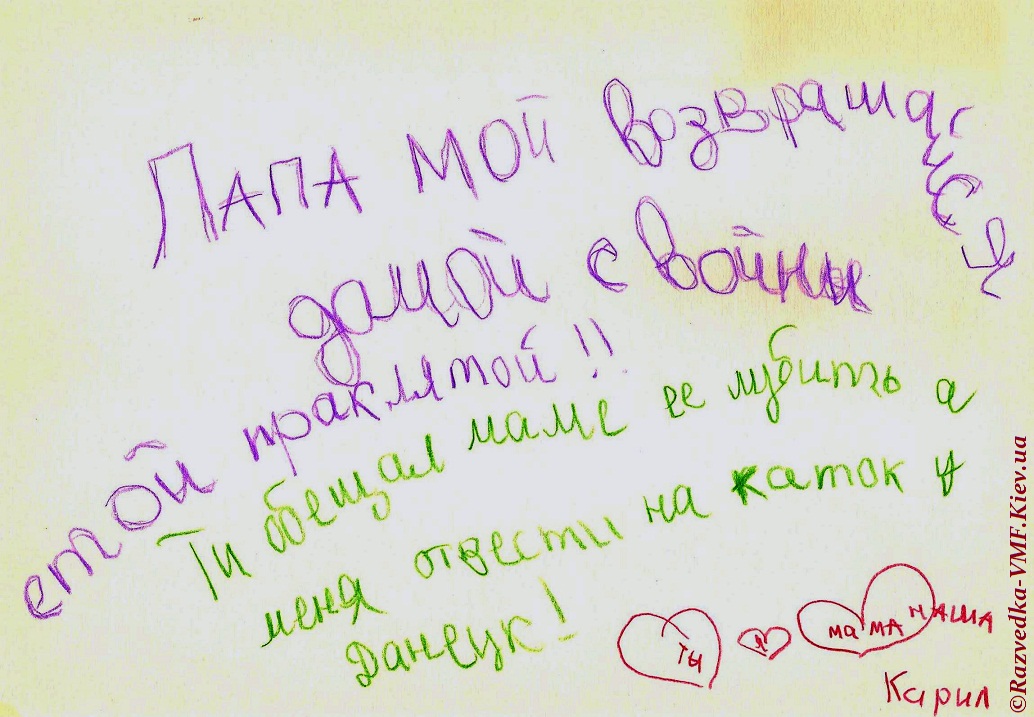 Папа мой возвращайся
дамой с войны
етой праклятой!!
Ти обещал маме ее лубить а
меня отвести на каток у
Данецк!
ты
я
мама наша
Карил
©Razvedka-VMF.Kiev.ua